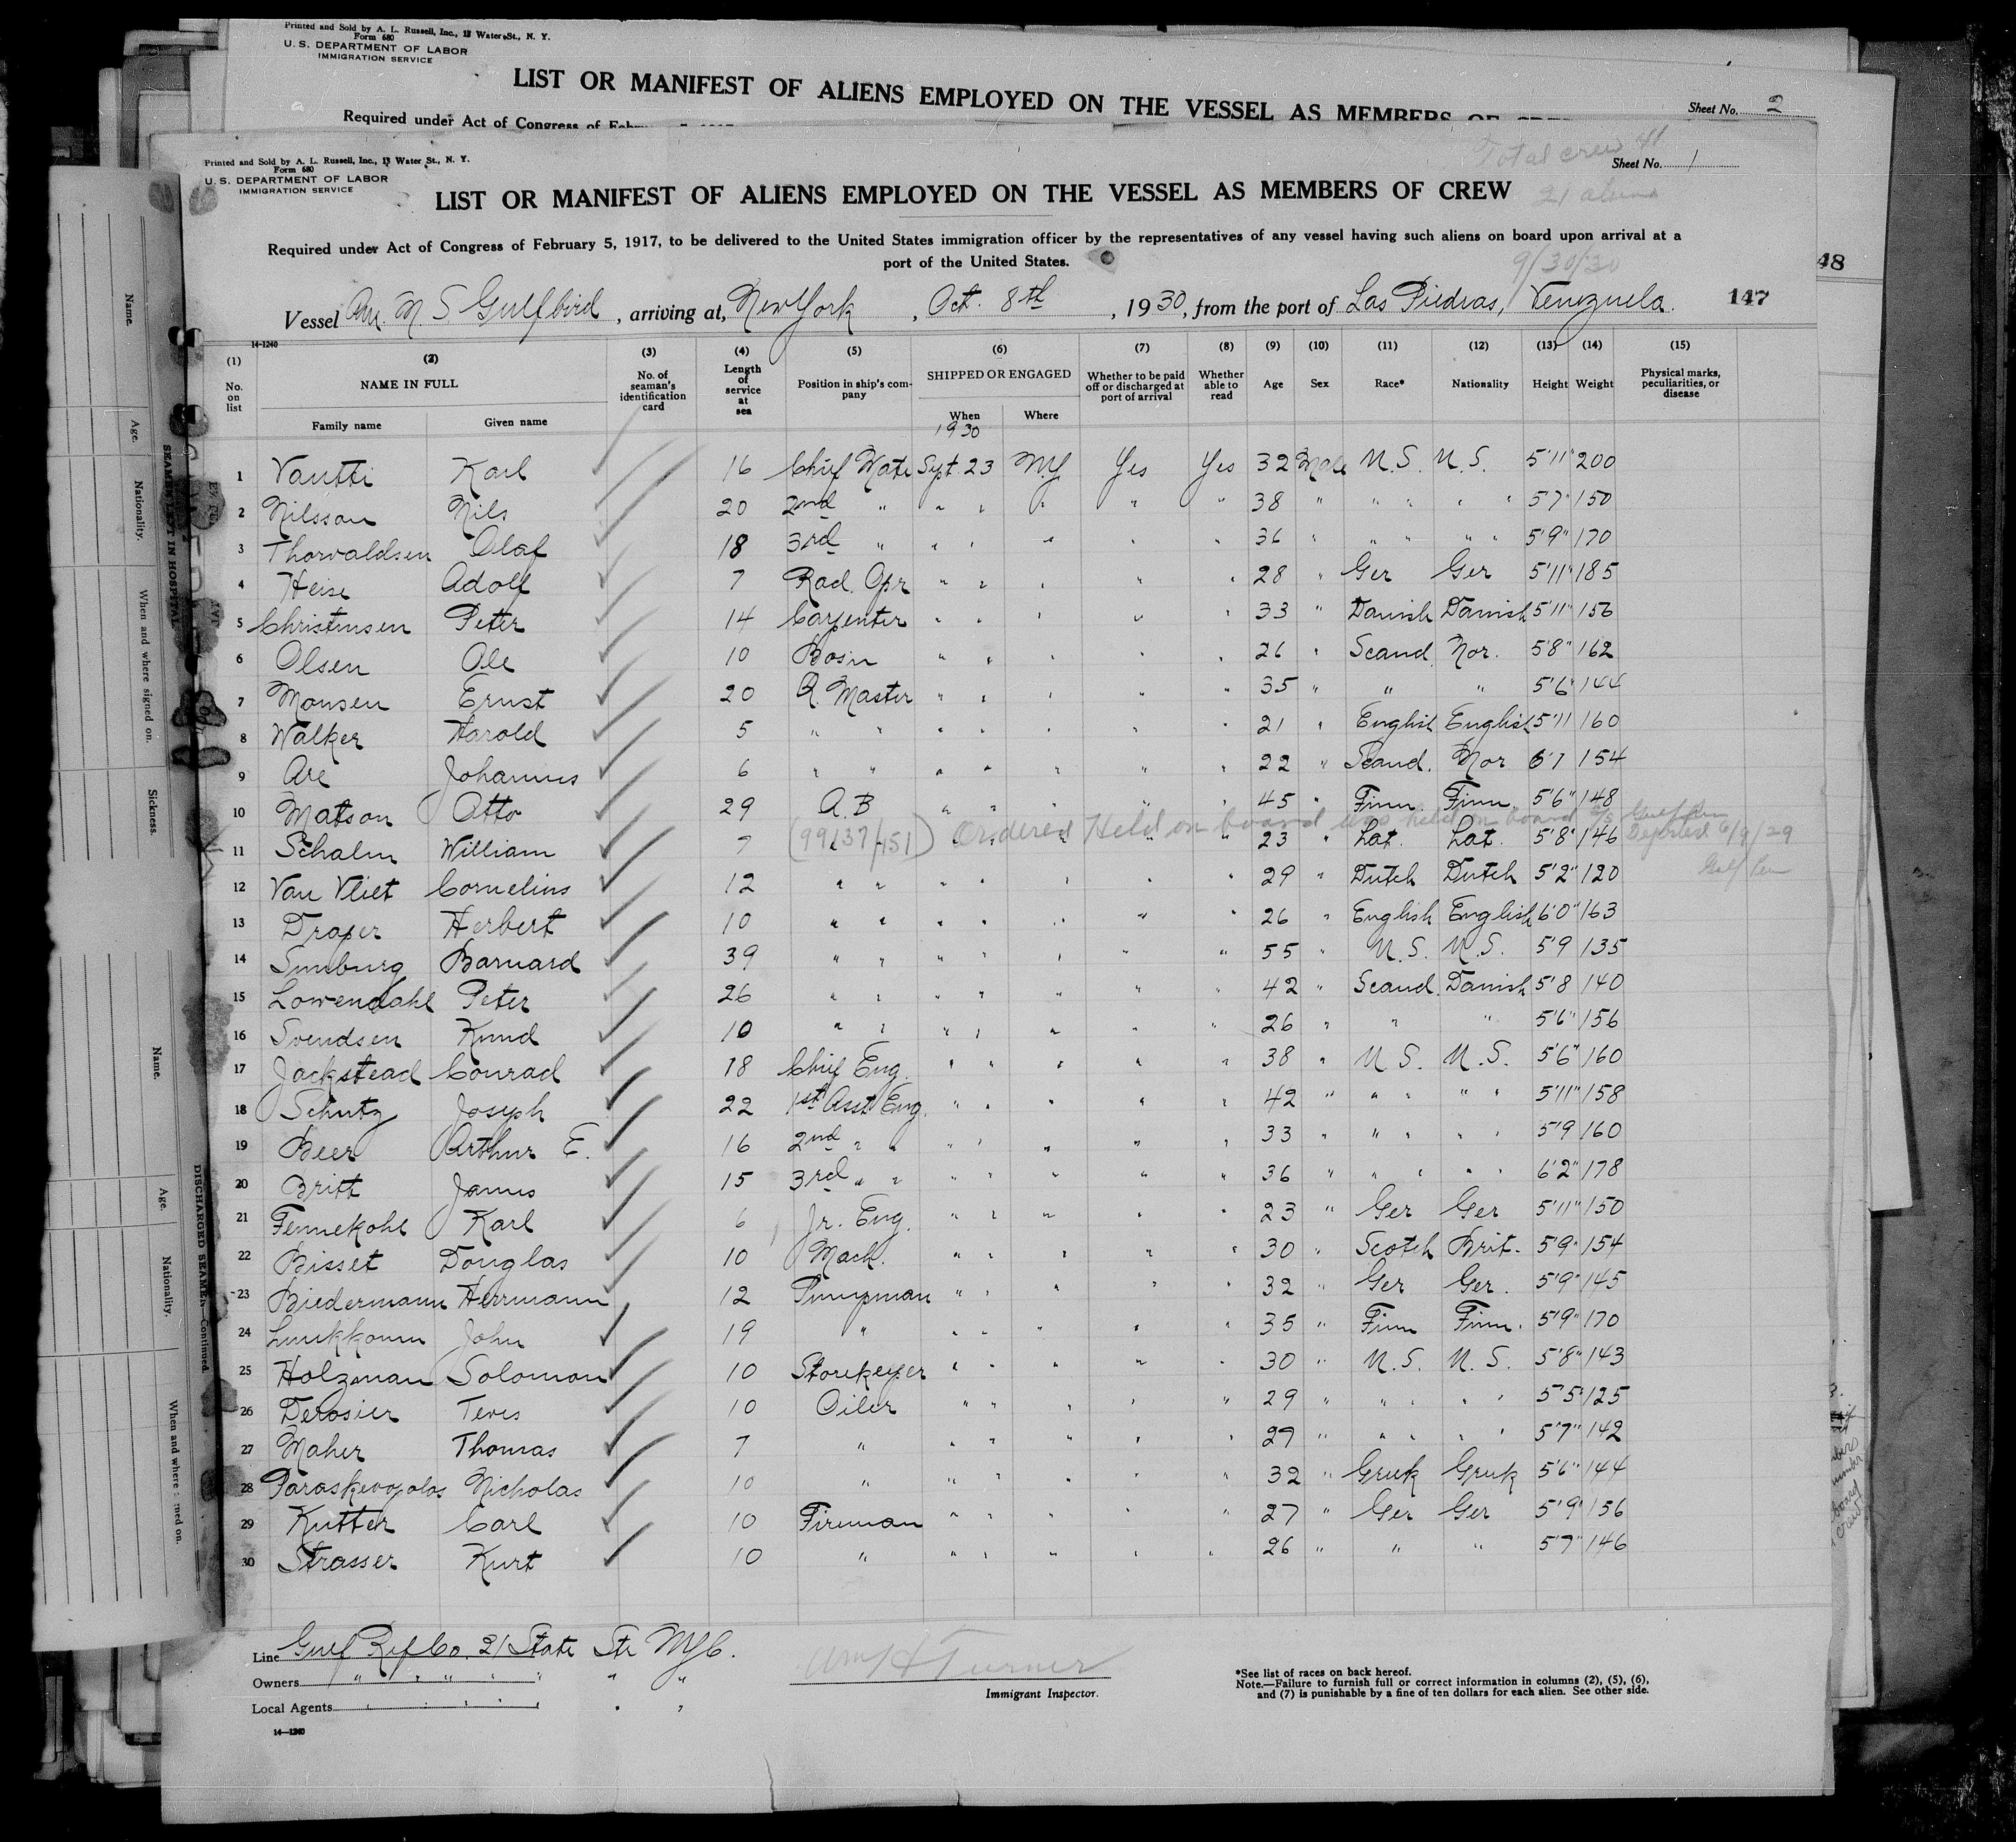 Printed and Sold by A. L. Russell, Inc., 13 Water St., N. Y.
Form 680
U. S. DEPARTMENT OF LABOR
IMMIGRATION SERVICE
LIST OR MANIFEST OF ALIENS EMPLOYED ON THE VESSEL AS MEMBERS OF
Sheet No. 2
Required under Act of Congress of
Printed and Sold by A. L. Russell, Inc., 13 Water St., N. Y.
Form 680
U. S. DEPARTMENT OF LABOR
IMMIGRATION SERVICE
Total crew 41
Sheet No. 1
LIST OR MANIFEST OF ALIENS EMPLOYED ON THE VESSEL AS MEMBERS OF CREW
21 aliens
Required under Act of Congress of February 5, 1917, to be delivered to the United States immigration officer by the representatives of any vessel having such aliens on board upon arrival at a
port of the United States.
9/30/30
48
Vessel Am. M S Gulfbird, arriving at, New York, Oct. 8th, 1930, from the port of Las Piedras, Venezuela. 147
14-1240
(1) (2) (3) (4) (5) (6) (7) (8) (9) (10) (11) (12) (13) (14) (15)
No. on list NAME IN FULL Family name Given name No. of seaman's identification card Length of service at sea Position in ship's company SHIPPED OR ENGAGED When 1930 Where Whether to be paid off or discharged at port of arrival Whether able to read Age Sex Race* Nationality Height Weight Physical marks, peculiarities, or disease
1 Vantti Karl 16 Chief Mate Sept. 23 N.Y. Yes Yes 32 Male U.S. U.S. 5'11" 200
2 Nilsson Nils 20 2nd " " " " " " 38 " " " " " 5'7" 150
3 Thorvaldsen Olaf 18 3rd " " " " " " 36 " " " " " 5'9" 170
4 Heise Adolf 7 Rad. Opr " " " " " 28 " Ger Ger 5'11" 185
5 Christensen Peter 14 Carpenter " " " " " 33 " Danish Danish 5'11" 156
6 Olsen Ole 10 Bosn " " " " " 26 " Scand. Nor. 5'8" 162
7 Monsen Ernst 20 Q. Master " " " " " 35 " " " 5'6" 144
8 Walker Harold 5 " " " " " " " 21 " English English 5'11 160
9 Are Johannes 6 " " " " " " " 22 " Scand. Nor 6'1 154
10 Matson Otto 29 A.B " " " " " 45 " Finn. Finn. 5'6" 148
(99137/151) Ordered Held on board was held on board
11 Schalm William 7 " " " " " 23 " Lat. Lat. 5'8" 146 Deported 6/9/29
12 Van Vliet Cornelius 12 " " " " " " " 29 " Dutch Dutch 5'2" 120
13 Draper Herbert 10 " " " " " " " 26 " English English 6'0" 163
14 Sunburg Barnard 39 " " " " " " " 55 " U.S. U.S. 5'9 135
15 Lowendahl Peter 26 " " " " " " " 42 " Scand. Danish 5'8 140
16 Svendsen Knud 10 " " " " " " " 26 " " " 5'6" 156
17 Jackstead Conrad 18 Chief Eng. " " " " " 38 " U.S. U.S. 5'6" 160
18 Schutz Joseph 22 1st Asst Eng. " " " " " 42 " " " " " 5'11" 158
19 Beer Arthur E. 16 2nd " " " " " " " 33 " " " " " 5'9 160
20 Britt James 15 3rd " " " " " " " 36 " " " " " 6'2" 178
21 Fennekohl Karl 6 Jr. Eng. " " " " " 23 " Ger Ger 5'11" 150
22 Bisset Douglas 10 Mach. " " " " " 30 " Scotch Brit. 5'9" 154
23 Biedermann Herrmann 12 Pumpman " " " " " 32 " Ger Ger. 5'9" 145
24 John 19 " " " " " " 35 " Finn Finn. 5'9" 170
25 Holzman Solomon 10 Storekeeper " " " " " 30 " U.S. U.S. 5'8" 143
26 Derosier Teves 10 Oiler " " " " " 29 " " " " " 5'5" 125
27 Maher Thomas 7 " " " " " " 27 " " " " " 5'7" 142
28 Paraskevopolos Nicholas 10 " " " " " " 32 " Greek Greek 5'6" 144
29 Kutter Carl 10 Fireman " " " " " 27 " Ger Ger 5'9" 156
30 Strasser Kurt 10 " " " " " " 26 " " " 5'7" 146
Line Gulf Ref Co. 21 State Str NYC.
Owners " " " " " " "
Local Agents " " " " " " "
14-1240
Wm H Turner
Immigrant Inspector.
*See list of races on back hereof.
Note.—Failure to furnish full or correct information in columns (2), (5), (6),
and (7) is punishable by a fine of ten dollars for each alien. See other side.
Name.
Age.
Nationality.
When and where signed on.
Sickness.
SEAMEN LEFT IN HOSPITAL
Name.
Age.
Nationality.
When and where signed on.
DISCHARGED SEAMEN—Continued.